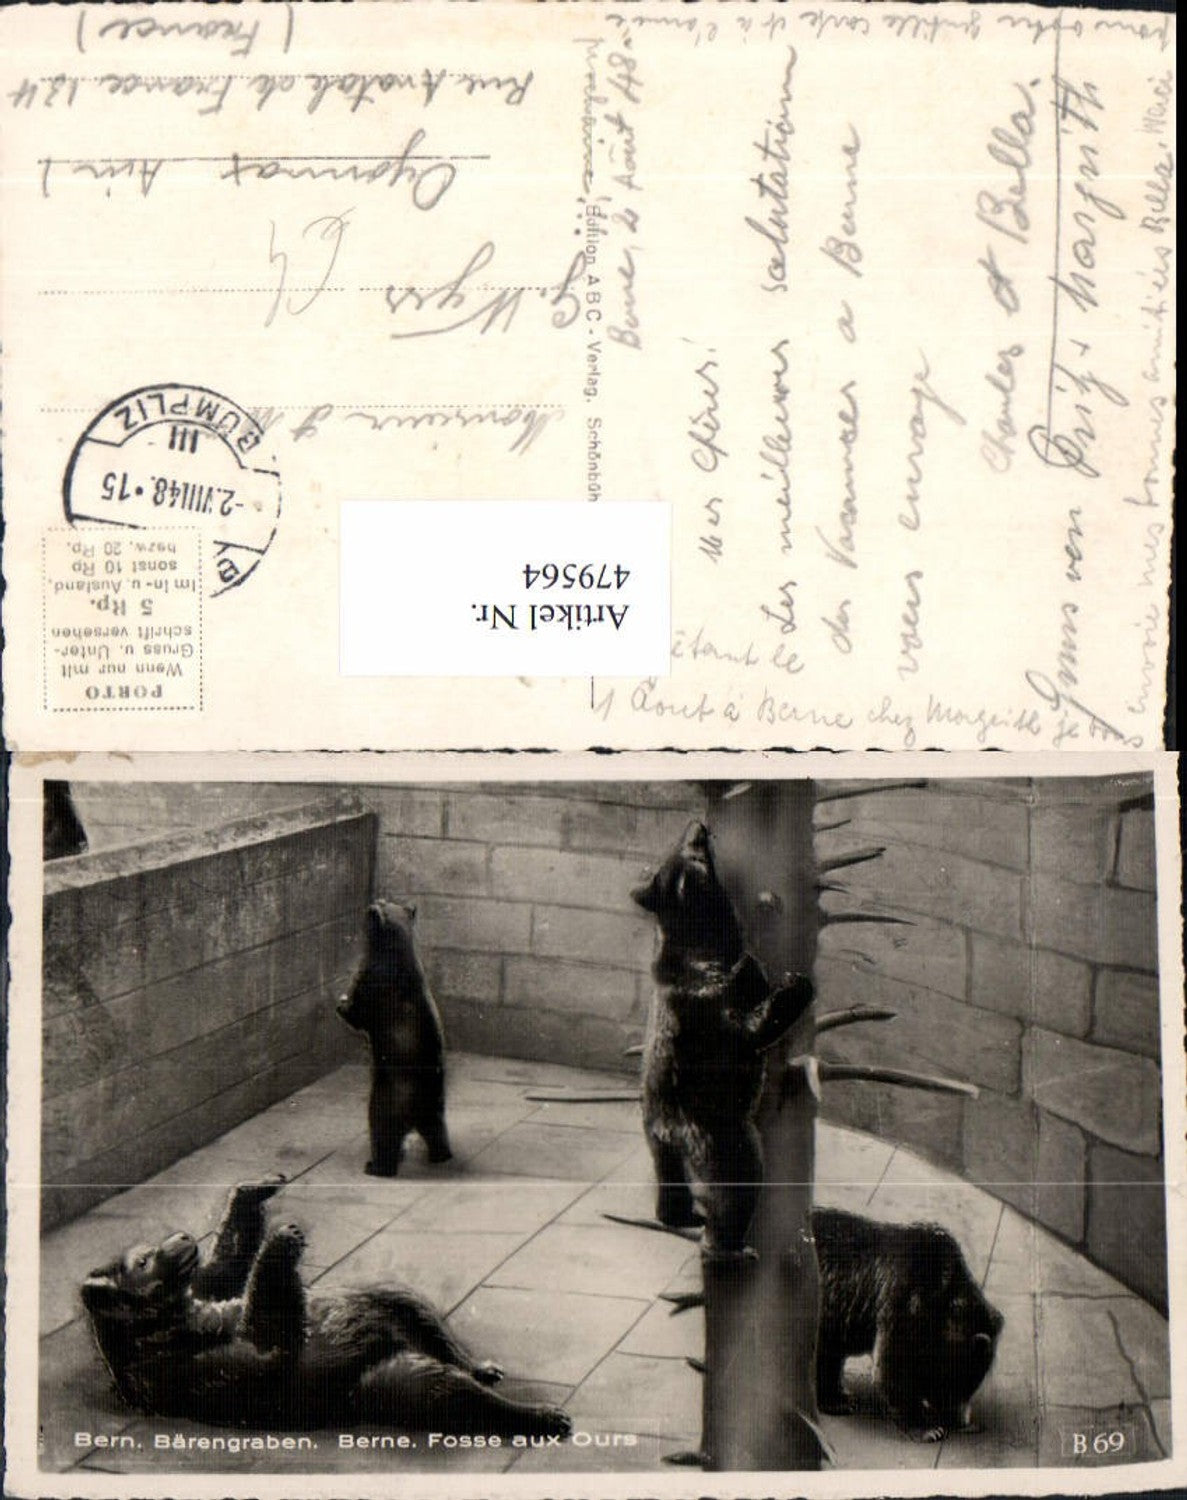 Berne, 2 Août 48
Mes Chères!
Les meilleures salutations
des Vacances a Berne
voeu envoye
Charles et Bella.
Gruss von Pui +
Margrith
étant le
1 Août à Berne chez Margrith je vous
envoie mes bonnes amitiés Bella. Merci
pour votre gentille carte et à l'année
prochaine!
Edition ABC - Verlag. Schönbüh
Monsieur & M
G. Wyss
Oyonnax Ain)
Rue Anatole de France 134
(France)
BÜMPLIZ
III
-2.VIII48.•15
PORTO
Wenn nur mit
Gruss u. Unter-
schrift versehen
5 Rp.
Im In- u. Ausland,
sonst 10 Rp
bezw. 20 Rp.
Artikel Nr.
479564
Bern. Bärengraben. Berne. Fosse aux Ours
B 69